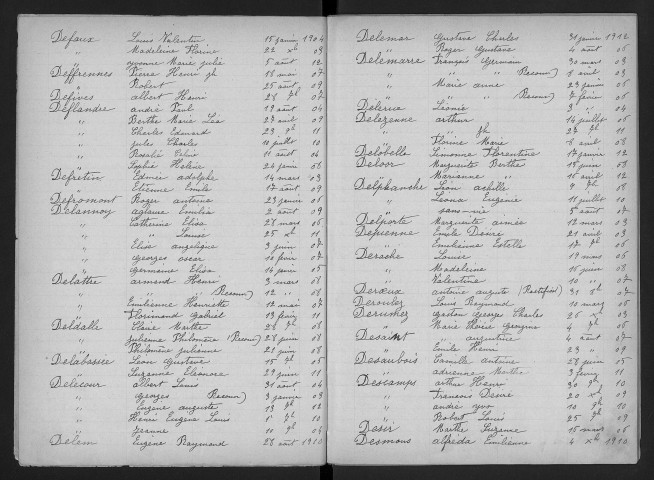 Defaux Louis Valentin 15 janvr 1904
" Madeleine Florine 22 xb 03
" Yvonne Marie Julie 5 aout 12
Deffrennes Pierre Henri Jh 18 mai 07
" Robert 25 aout 09
Defives Albert Henri 28 07
Deflandre André Paul 19 aout 04
" Berthe Marie Léa 27 avril 09
" Charles Edmond 23 11
" Jules Charles 10 juillet 10
" Rosalie 11 aout 04
" Sophie Hélène 24 juin 06
Defretin Edmée Adolphe 14 mars 03
" Etienne Emile 17 aout 09
Defromont Roger Antoine 23 janvr 06
Delannoy Aglaure Emilie 2 aout 09
" Catherine Elisa 28 mars 06
" " Louise 25 xb 11
" Elise Angelique 3 juin 07
" Georges Oscar 10 07
" Germaine Elisa 14 janvr 05
Delattre Armand Henri 3 mars 08
" " (Reconn) 12 " 08
" Emilienne Henriette 12 mai 07
" Florimond Gabriel 13 11
Deldalle Claire Marthe 28 08
" Julienne Philomène (Reconn) 28 juin 08
" Philomène Julienne 21 juin 08
Delabassée Léon Gustave 15 05
" Suzanne Eléonore 29 juin 11
Delecour Albert Louis 31 aout 04
" Georges (Reconn) 3 janvr 09
" Eugène Auguste 13 12
" Henri Eugène Louis 10
" Jeanne 10 04
Delem Eugène Raymond 28 aout 1910
Delemar Gustave Charles 31 janvr 1912
" Roger Gustave 4 aout 06
Delemarre François Germain 30 mars 03
" " " (Reconn) 8 avril 03
" Marie Anne 23 janvr 06
" " " (Reconn) 7 fevrier 06
Deleruë Léonie 3 " 04
Delezenne Arthur 14 juillet 06
" " Jh 27 11
" Florine Marie 6 avril 08
Delobelle Simonne Florentine 17 janvr 12
Deloor Marguerite Berthe 15 juin 03
" Marianne " 16 avril 12
Delplanche Léon Achille 9 08
" Leoux Eugénie 11 juillet 10
" sans-vie 5 aout 07
Delporte Marguerite Aimée 12 mars 03
Depienne Emile Désiré 21 avril 03
" Emilienne Estelle 17 06
Derache Louise 12 mars 05
" Madeleine 16 juin 08
" Valentine 10 " 07
Deroeux Antoine Auguste (Rectifié) 31 07
Deroulez Louis Raymond 10 mars 06
Derumez Gaston Georges Charles 26 xb 03
" Marie Georgina 4 06
Desaint " Augustine 4 aout 07
" Emile Henri 23 " 09
Desaubois Camille Antoine 28 juin 05
" Adrienne Marthe 3 11
Descamps Arthur Henri 30 10
" François Désiré 20 xb 10
" André Yvon 10 10
" Robert Louis 25 09
Desir Marthe Suzanne 15 mars 06
Desmons Alfréda Emilienne 4 xb 1910